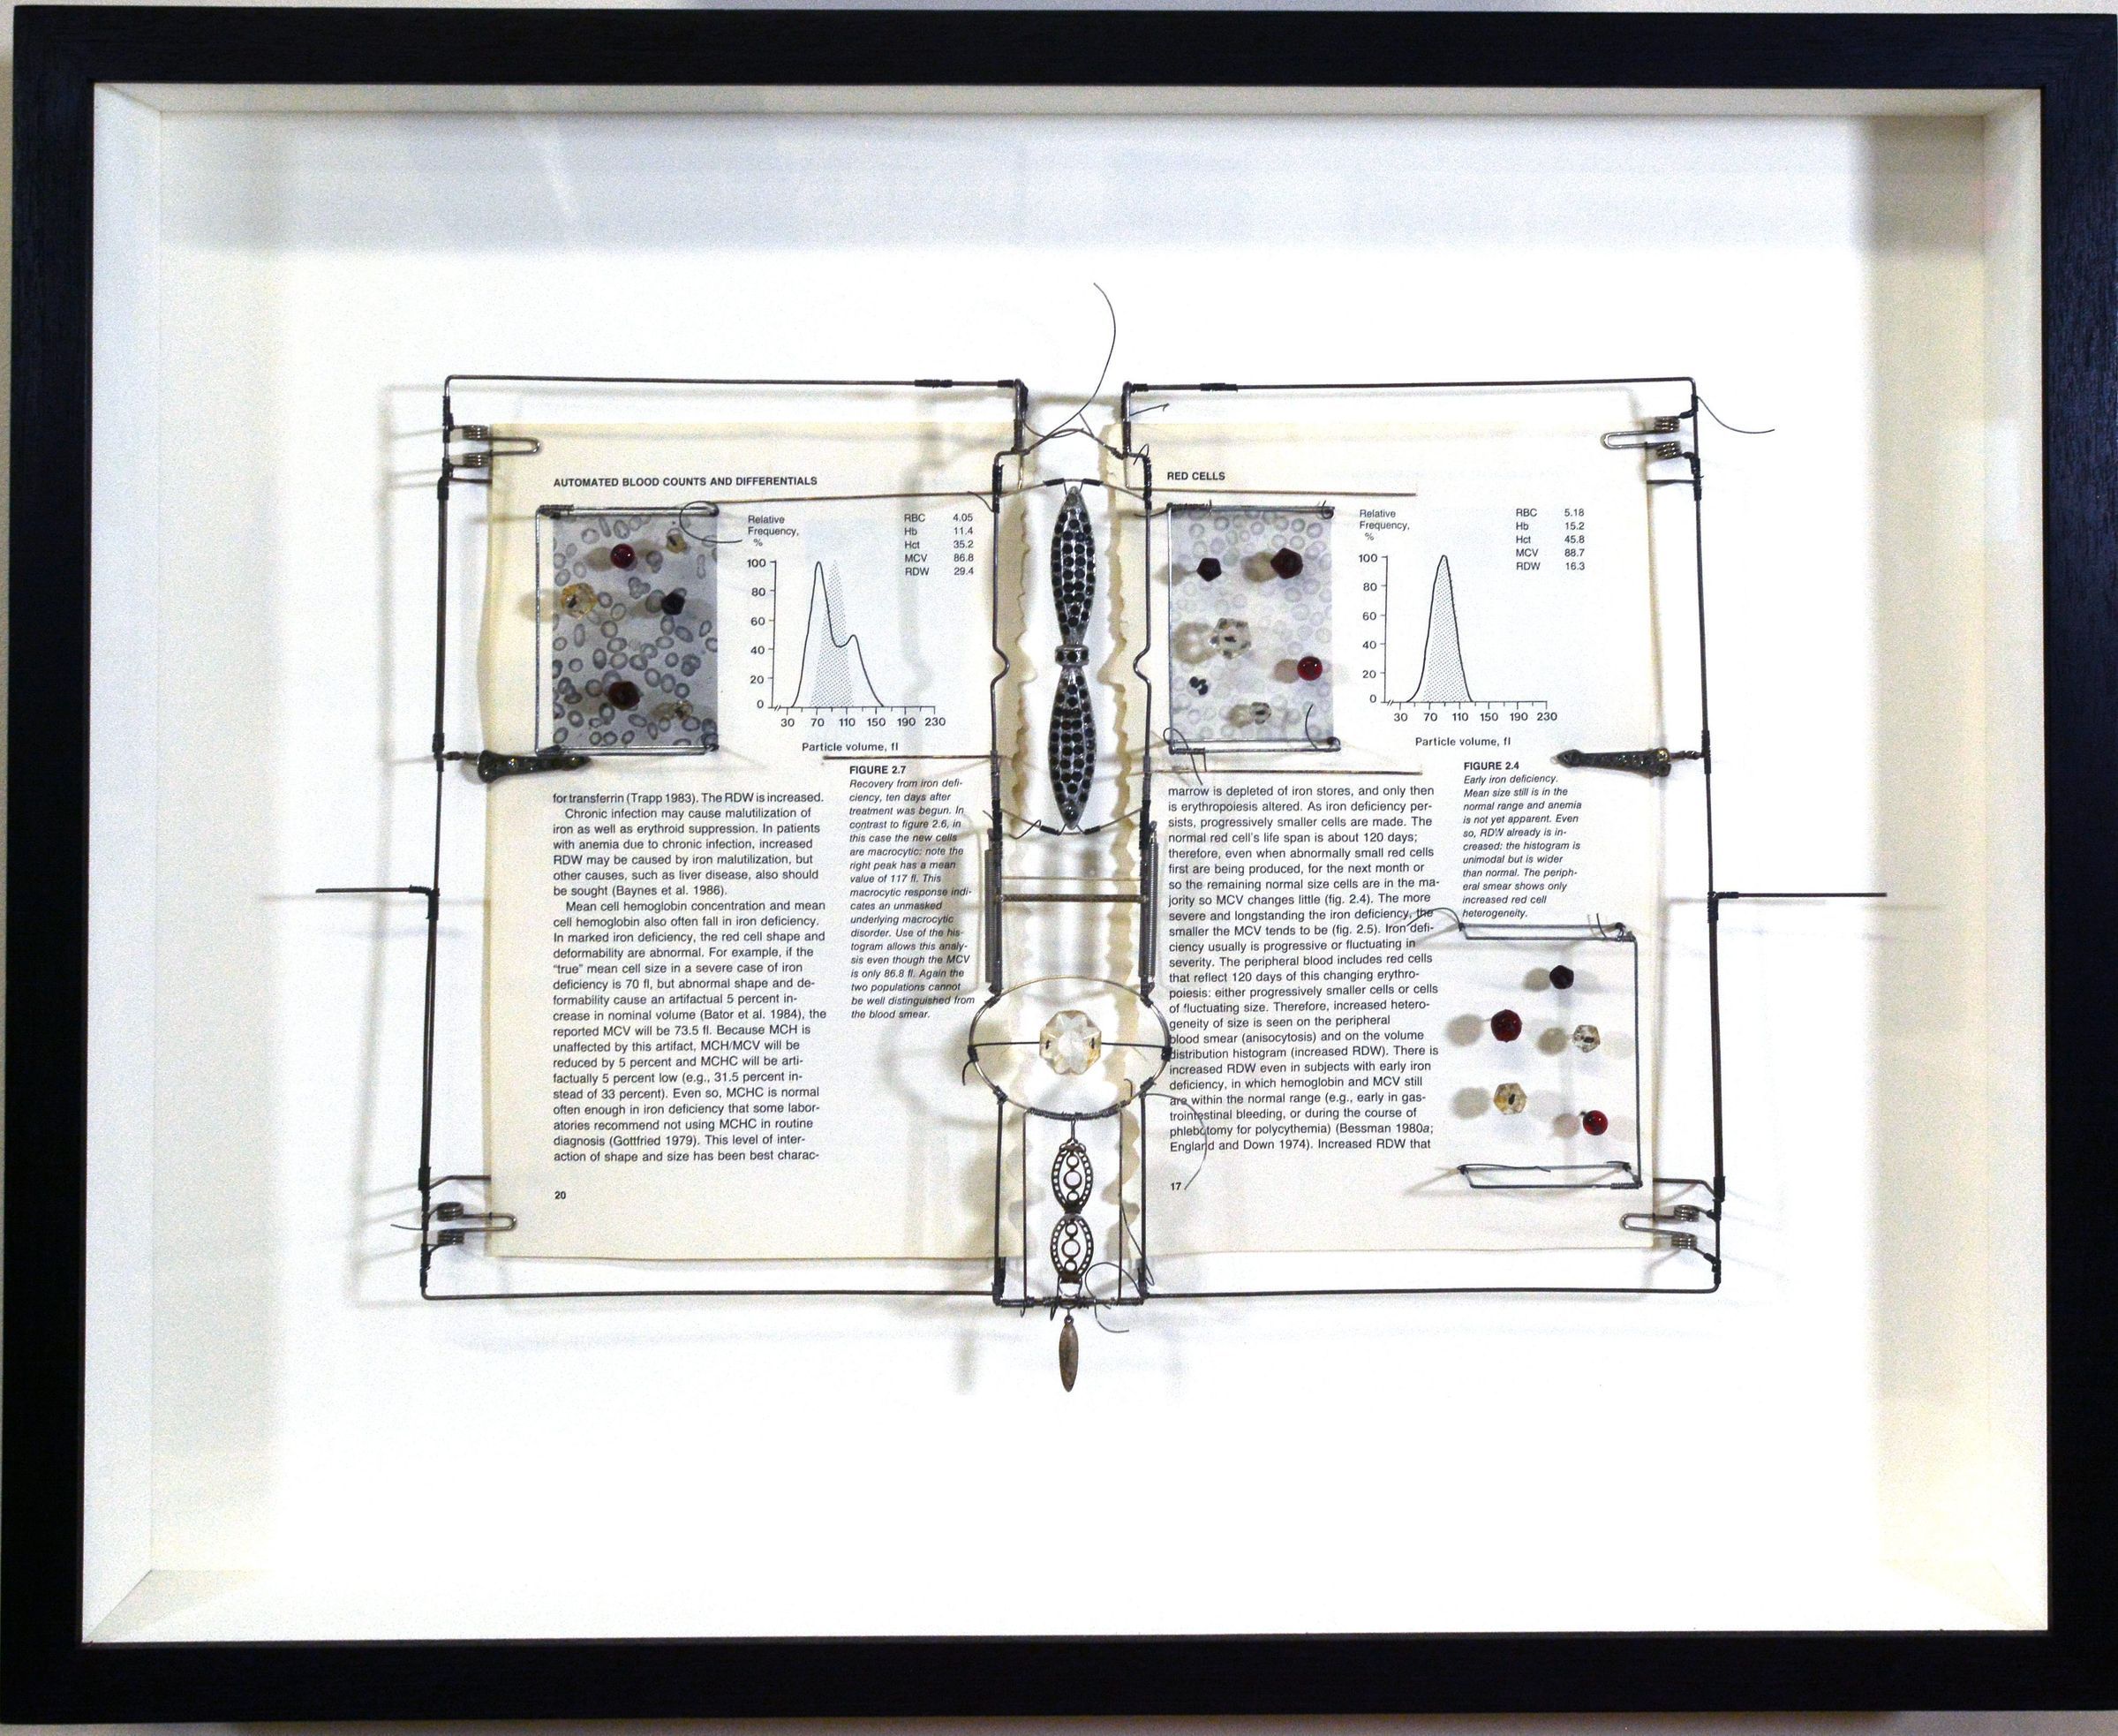 AUTOMATED BLOOD COUNTS AND DIFFERENTIALS
Relative
Frequency,
%
100
80
60
40
20
0
30 70 110 150 190 230
Particle volume, fl
RBC 4.05
Hb 11.4
Hct 35.2
MCV 86.8
RDW 29.4
FIGURE 2.7
Recovery from iron defi-
ciency, ten days after
treatment was begun. In
contrast to figure 2.6, in
this case the new cells
are macrocytic: note the
right peak has a mean
value of 117 fl. This
macrocytic response indi-
cates an unmasked
underlying macrocytic
disorder. Use of the his-
togram allows this analy-
sis even though the MCV
is only 86.8 fl. Again the
two populations cannot
be well distinguished from
the blood smear.
for transferrin (Trapp 1983). The RDW is increased.
Chronic infection may cause malutilization of
iron as well as erythroid suppression. In patients
with anemia due to chronic infection, increased
RDW may be caused by iron malutilization, but
other causes, such as liver disease, also should
be sought (Baynes et al. 1986).
Mean cell hemoglobin concentration and mean
cell hemoglobin also often fall in iron deficiency.
In marked iron deficiency, the red cell shape and
deformability are abnormal. For example, if the
"true" mean cell size in a severe case of iron
deficiency is 70 fl, but abnormal shape and de-
formability cause an artifactual 5 percent in-
crease in nominal volume (Bator et al. 1984), the
reported MCV will be 73.5 fl. Because MCH is
unaffected by this artifact, MCH/MCV will be
reduced by 5 percent and MCHC will be arti-
factually 5 percent low (e.g., 31.5 percent in-
stead of 33 percent). Even so, MCHC is normal
often enough in iron deficiency that some labor-
atories recommend not using MCHC in routine
diagnosis (Gottfried 1979). This level of inter-
action of shape and size has been best charac-
20
RED CELLS
Relative
Frequency,
%
100
80
60
40
20
0
30 70 110 150 190 230
Particle volume, fl
RBC 5.18
Hb 15.2
Hct 45.8
MCV 88.7
RDW 16.3
FIGURE 2.4
Early iron deficiency.
Mean size still is in the
normal range and anemia
is not yet apparent. Even
so, RDW already is in-
creased: the histogram is
unimodal but is wider
than normal. The periph-
eral smear shows only
increased red cell
heterogeneity.
marrow is depleted of iron stores, and only then
is erythropoiesis altered. As iron deficiency per-
sists, progressively smaller cells are made. The
normal red cell's life span is about 120 days;
therefore, even when abnormally small red cells
first are being produced, for the next month or
so the remaining normal size cells are in the ma-
jority so MCV changes little (fig. 2.4). The more
severe and longstanding the iron deficiency, the
smaller the MCV tends to be (fig. 2.5). Iron defi-
ciency usually is progressive or fluctuating in
severity. The peripheral blood includes red cells
that reflect 120 days of this changing erythro-
poiesis: either progressively smaller cells or cells
of fluctuating size. Therefore, increased hetero-
geneity of size is seen on the peripheral
blood smear (anisocytosis) and on the volume
distribution histogram (increased RDW). There is
increased RDW even in subjects with early iron
deficiency, in which hemoglobin and MCV still
are within the normal range (e.g., early in gas-
trointestinal bleeding, or during the course of
phlebotomy for polycythemia) (Bessman 1980a;
England and Down 1974). Increased RDW that
17